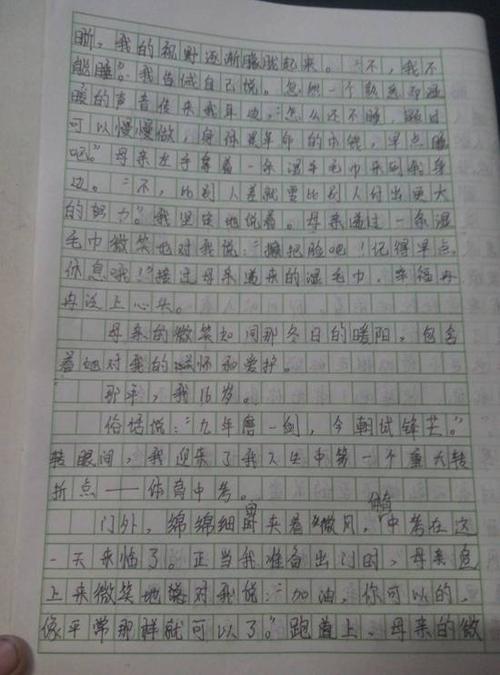 晰，我的视野逐渐朦胧起来。“不，我不
能睡”。我告诫自己说。忽然一个熟悉却温
暖的声音传来我耳边，“怎么还不睡，题目
可以慢慢做，身体是革命的本钱，早点睡
吧。”母亲左手拿着一条湿毛巾来到我身
边。“不，比别人差就要比别人付出更大
的努力”。我坚定地说着。母亲递过一条湿
毛巾微笑地对我说：“擦把脸吧！记得早点
休息哦！”接过母亲递来的湿毛巾，幸福再
再没上心头。
母亲的微笑如同那冬日的暖阳，包含
着她对我的关怀和爱护。
那年，我16岁。
俗话说：“九年磨一剑，今朝试锋芒。”
转眼间，我迎来了我人生中第一个重大转
折点——体育中考。
门外，绵绵细雨夹着微风，体育中考在这
一天来临了。正当我准备出门时，母亲迎
上来微笑地对我说：“加油，你可以的，
像平常那样就可以了。”跑道上，母亲的微